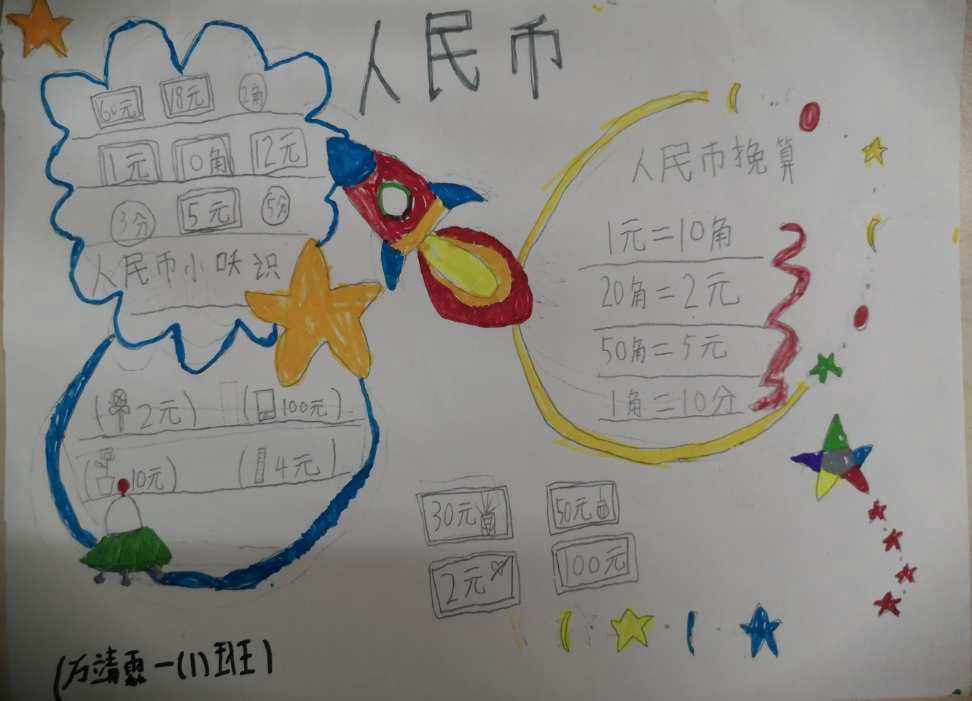 人民币
60元 18元 2角
1元 10角 12元
3分 5元 5分
人民币小呋识
人民币挽算
1元=10角
20角=2元
50角=5元
1角=10分
(2元) (100元)
(10元) (4元)
30元 50元
2元 100元
一(1)班)